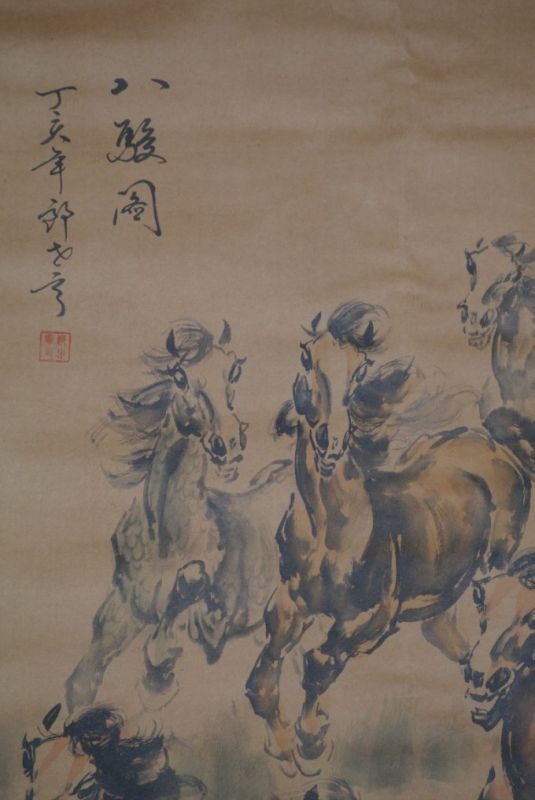 八駿圖
丁亥年郎世寧